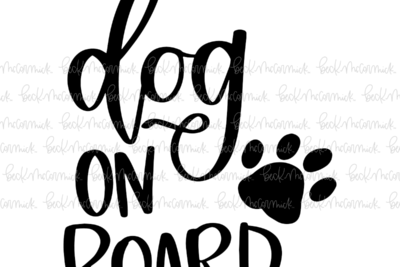 dog
ON
BOARD